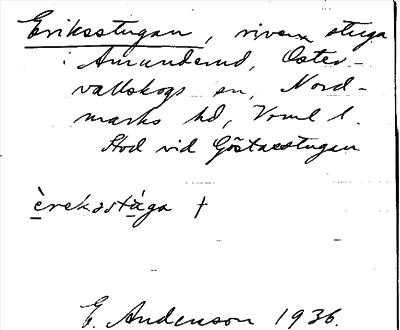 Eriksstugan, riven stuga
i Amunderud, Öster-
vallskogs sn, Nord-
marks hd, Vrml l.
Stod vid Göstasstugan
èrekastùga †
E. Anderson 1936.